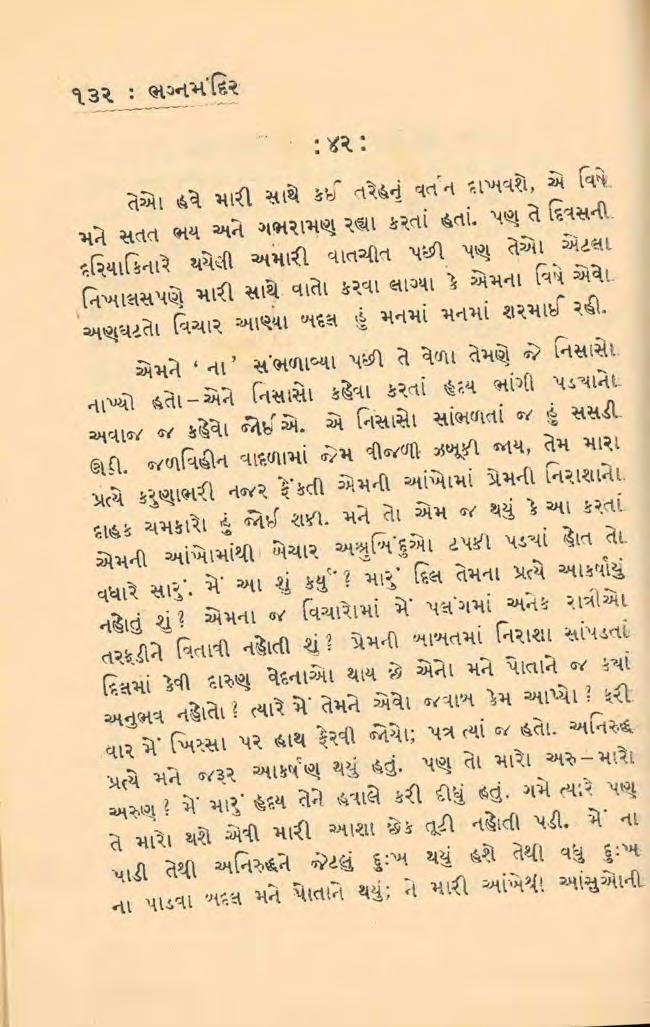 ૧૩૨ : ભગ્નમંદિર
: ૪૨ :
તેઓ હવે મારી સાથે કઈ તરેહનું વર્તન દાખવશે, એ વિષે
મને સતત ભય અને ગભરામણ રહ્યા કરતાં હતાં. પણ તે દિવસની
દરિયાકિનારે થયેલી અમારી વાતચીત પછી પણ તેઓ એટલા
નિખાલસપણે મારી સાથે વાતો કરવા લાગ્યા કે એમના વિષે એવો
અણઘટતો વિચાર આણ્યા બદલ હું મનમાં મનમાં શરમાઈ રહી.
એમને ‘ ના ’ સંભળાવ્યા પછી તે વેળા તેમણે જે નિસાસો
નાખ્યો હતો – એને નિસાસો કહેવા કરતાં હૃદય ભાંગી પડ્યાનો
અવાજ જ કહેવો જોઈએ. એ નિસાસો સાંભળતાં જ હું સસડી
ઊઠી. જળવિહીન વાદળામાં જેમ વીજળી ઝબૂકી જાય, તેમ મારા
પ્રત્યે કરુણાભરી નજર ફેંકતી એમની આંખોમાં પ્રેમની નિરાશાનો
દાહક ચમકારો હું જોઈ શકી. મને તો એમ જ થયું કે આ કરતાં
એમની આંખોમાંથી બેચાર અશ્રુબિંદુઓ ટપકી પડ્યાં હોત તો
વધારે સારું. મેં આ શું કર્યું ? મારું દિલ તેમના પ્રત્યે આકર્ષાયું
નહોતું શું ? એમના જ વિચારોમાં મેં પલંગમાં અનેક રાત્રીઓ
તરફડીને વિતાવી નહોતી શું ? પ્રેમની બાબતમાં નિરાશા સાંપડતાં
દિલમાં કેવી દારુણ વેદનાઓ થાય છે એનો મને પોતાને જ ક્યાં
અનુભવ નહોતો ? ત્યારે મેં તેમને એવો જવાબ કેમ આપ્યો ? ફરી
વાર મેં ખિસ્સા પર હાથ ફેરવી જોયો; પત્ર ત્યાં જ હતો. અનિરુદ્ધ
પ્રત્યે મને જરૂર આકર્ષણ થયું હતું. પણ તો મારો અરુ – મારો
અરુણ ? મેં મારું હૃદય તેને હવાલે કરી દીધું હતું. ગમે ત્યારે પણ
તે મારો થશે એવી મારી આશા છેક તૂટી નહોતી પડી. મેં ના
પાડી તેથી અનિરુદ્ધને જેટલું દુઃખ થયું હશે તેથી વધુ દુઃખ
ના પાડવા બદલ મને પોતાને થયું; ને મારી આંખેથી આંસુઓની